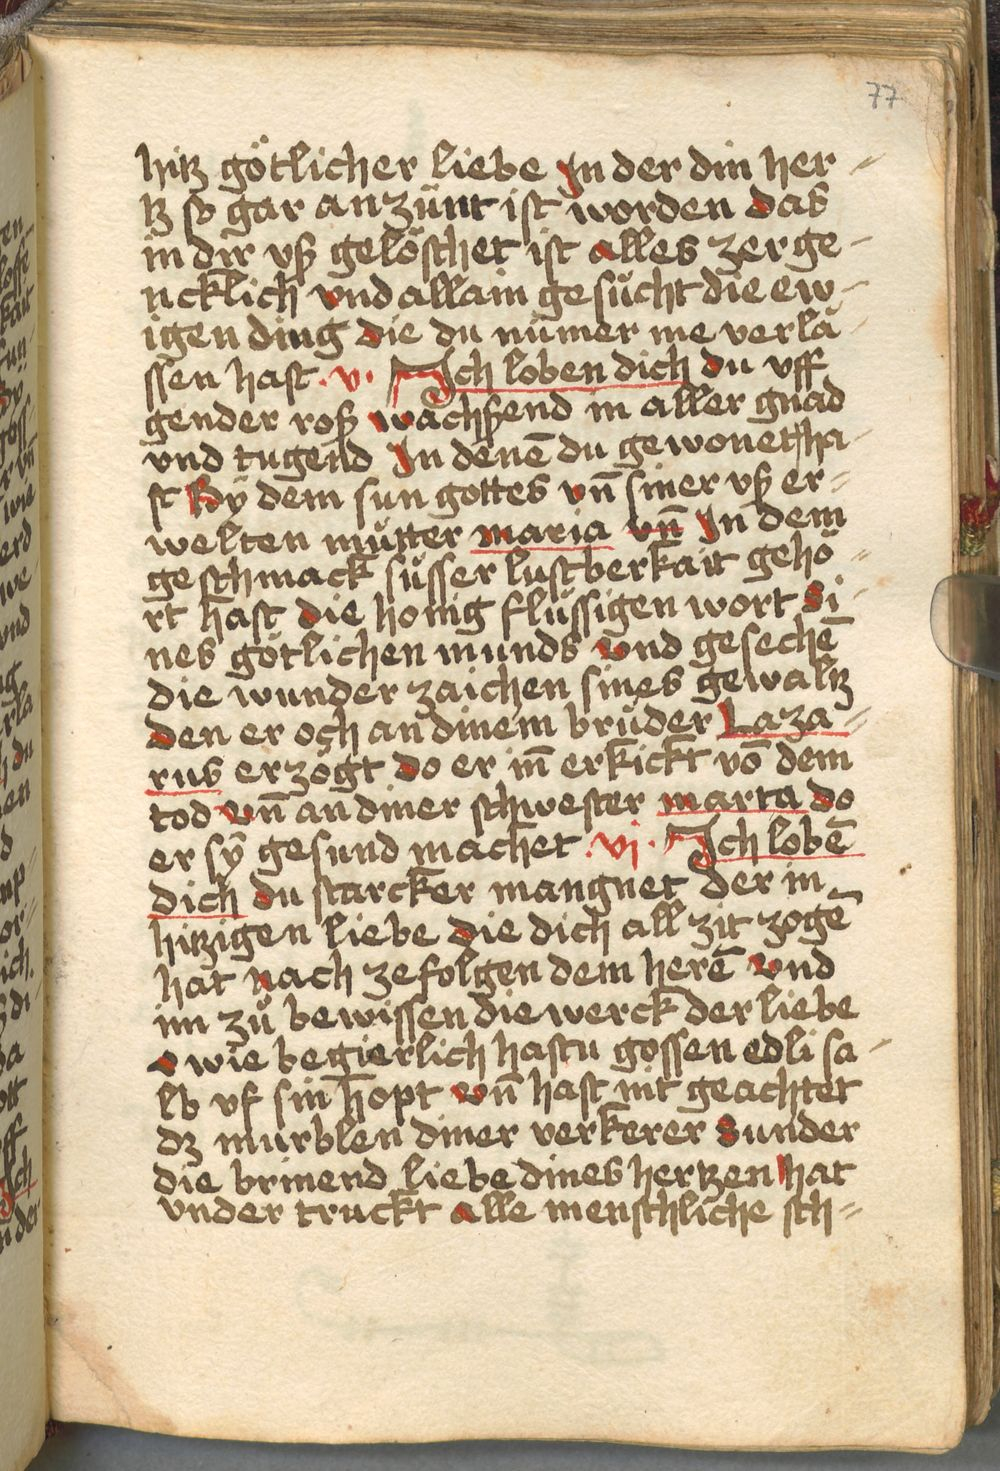 77
hitz götlicher liebe In der din her-
tz so gar anzünt ist worden das
in dir vß gelöschet ist alles zerge-
ncklich vnd allain gesücht die ew-
igen ding die du nümer me verlä-
ssen hast .v. Ich loben dich du vff
gender roß wachßend in aller gnad
vnd tugend In denē du gewonet ha-
st By dem sun gottes vn̄ siner vß er-
welten mütter maria vn̄ In dem
geschmack süsser lustberkait gehö-
rt hast die honig flüssigen wort si-
nes götlichen munds vnd gesechē
die wunder zaichen sines gewaltz
den er och an dinem brüder Laza-
rus erzögt do er in̄ erkickt vō dem
tod vn̄ an diner schwester marta do
er sÿ gesund machet .vj. Ich lobē
dich du starcker mangnet der in
hitzigen liebe die dich all zit zogē
hat nach ze folgen dem herē vnd
im zü bewissen die werck der liebe
o wie begierlich hastu gossen edli sa-
lb vf sin hopt vn̄ hast nit geachtet
dz murblen diner verkerer Sunder
die brinend liebe dines hertzen hat
vnder truckt alle menschliche sch-